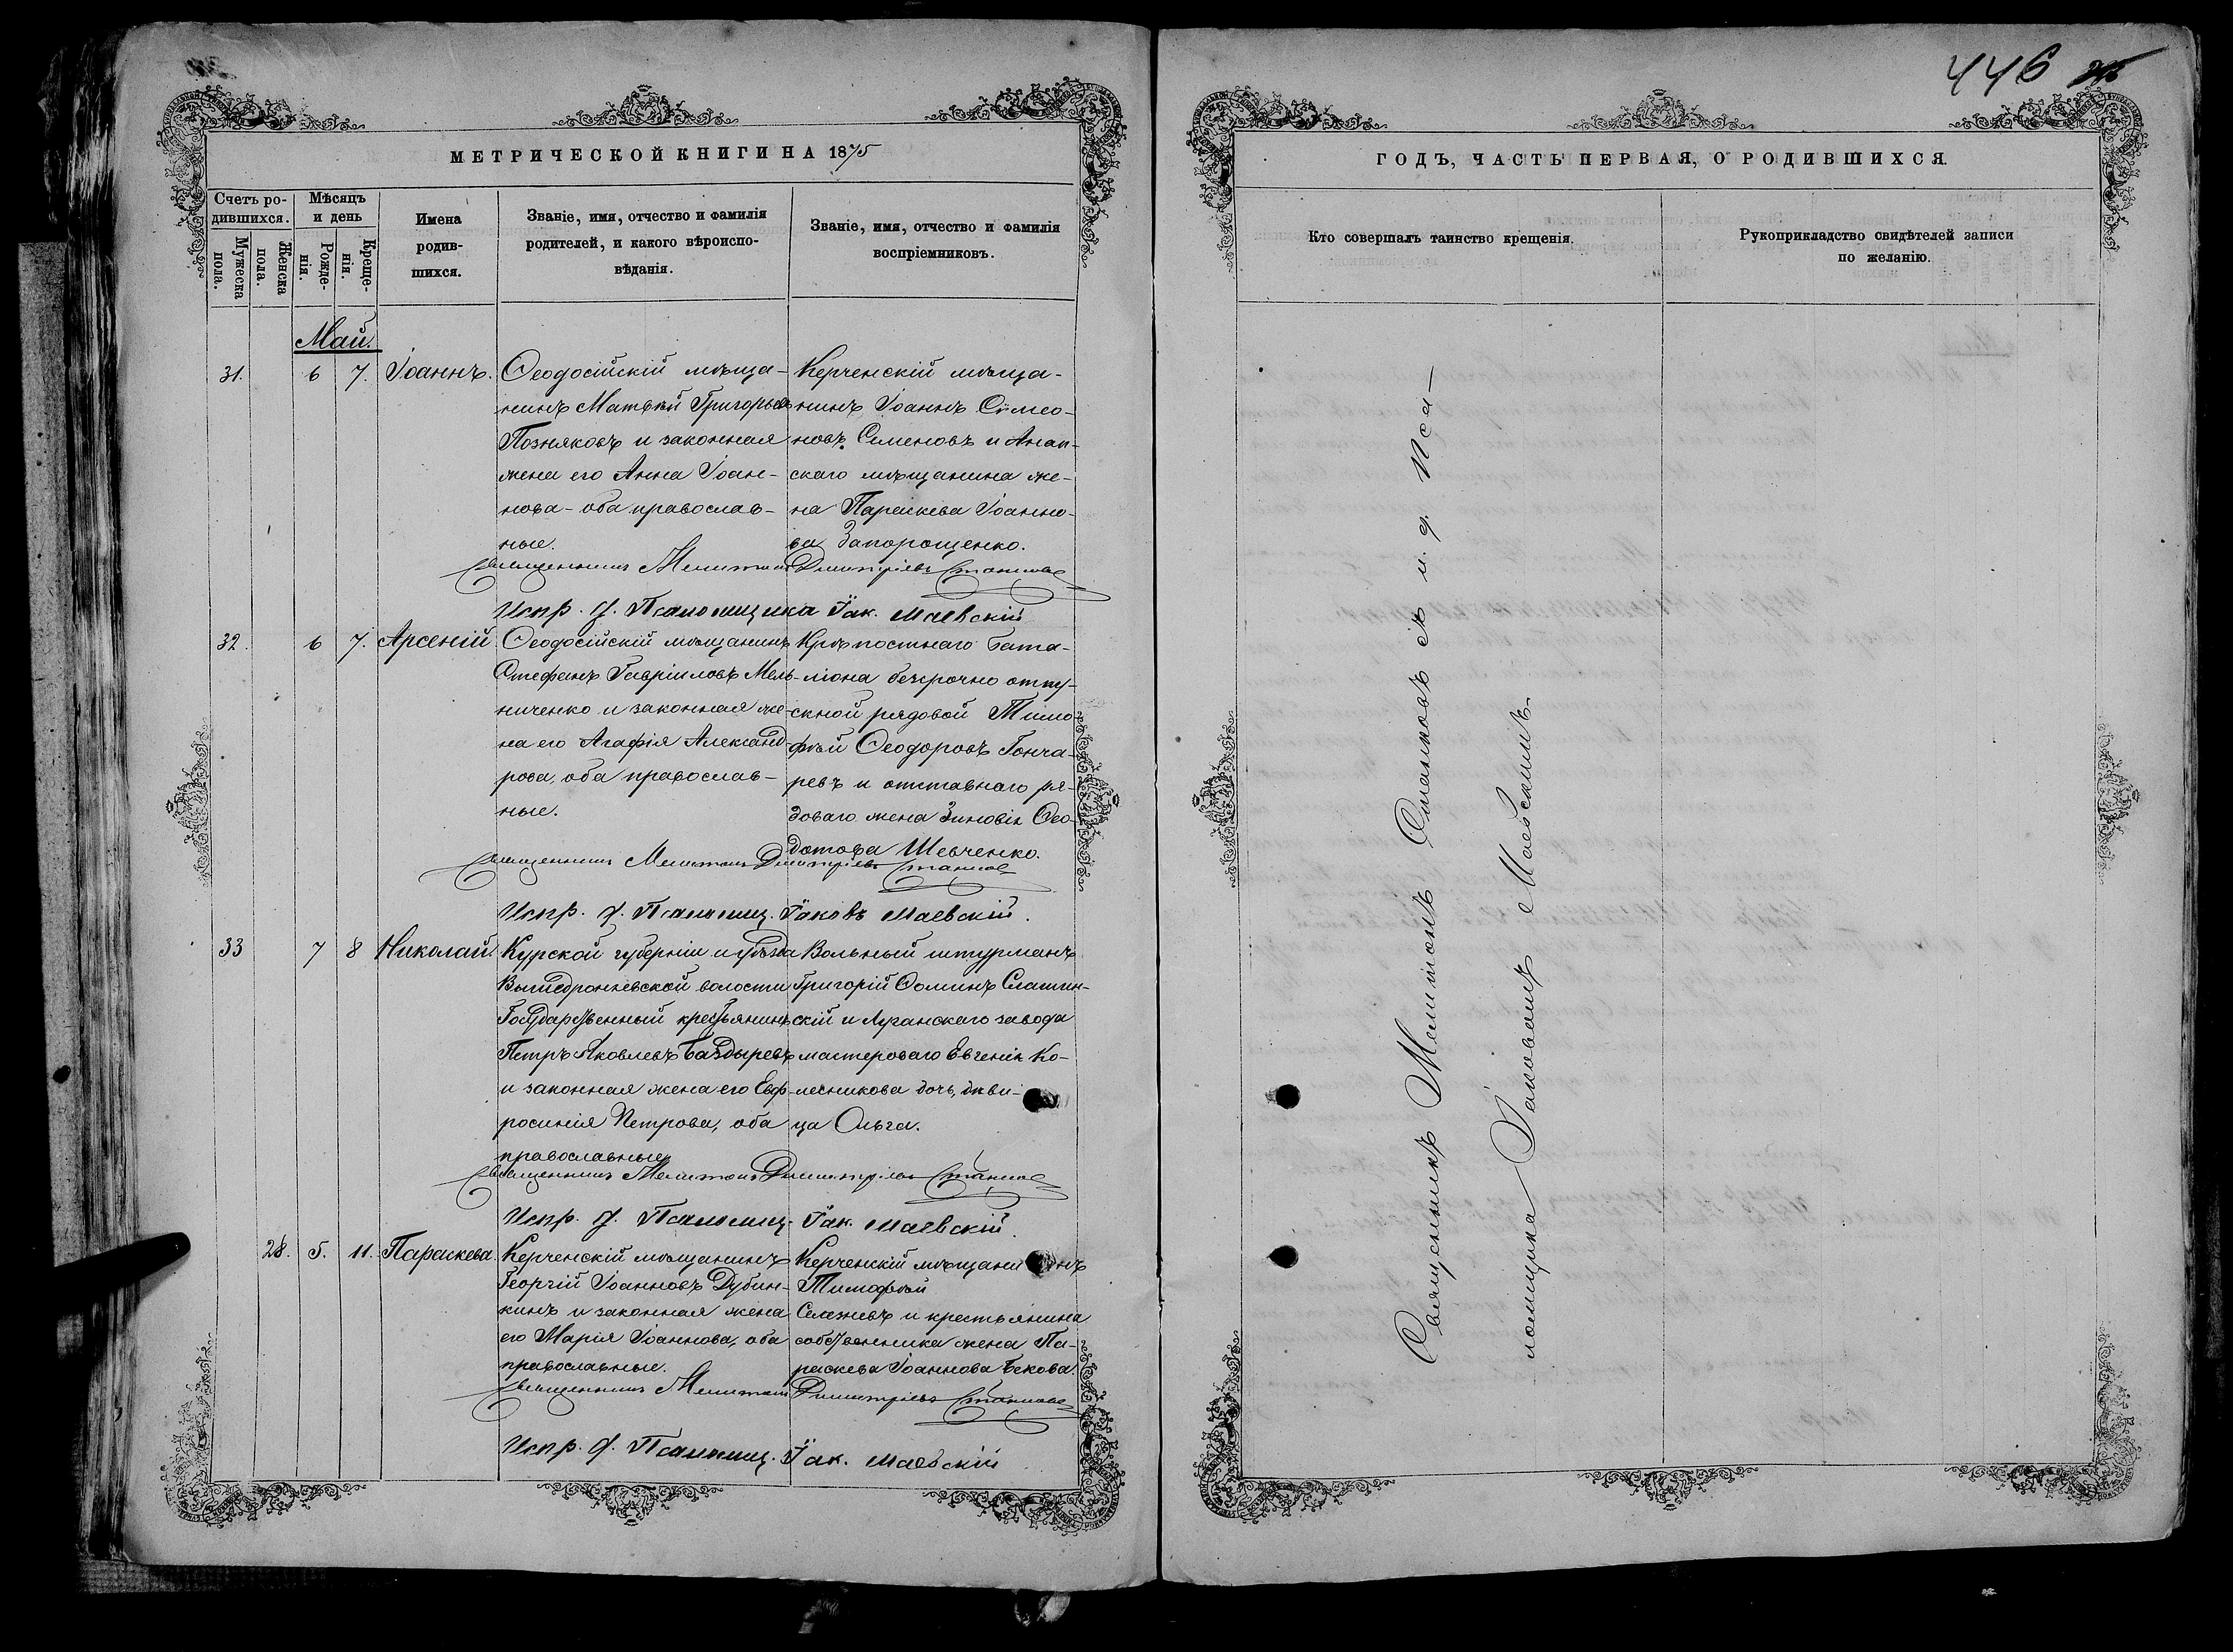 446
МЕТРИЧЕСКОЙ КНИГИ НА 1875
Счетъ ро-
дившихся.
Мужеска
пола.
Женска
пола.
Мѣсяцъ
и день
Рожде-
нія.
Креще-
нія.
Имена
родив-
шихся.
Званіе, имя, отчество и фамилія
родителей, и какого вѣроиспо-
вѣданія.
Званіе, имя, отчество и фамилія
воспріемниковъ.
Май.
31. 6 7. Іоаннъ.
Ѳеодосійскій мѣща-
нинъ Матѳѣй Григорьевъ
Позняковъ и законная
жена его Анна Іоан-
нова - оба православ-
ные.
Керченскій мѣща-
нинъ Іоаннъ Сѷмео-
новъ Семеновъ и Анап-
скаго мѣщанина же-
на Параскева Іоанно-
ва Запорощенко.
Священникъ Мелитонъ Димитріевъ Станковъ
Испр. д. Псаломщика Іак. Маевскій
32. 6 7. Арсеній
Ѳеодосійскій мѣщанинъ
Стефанъ Гавріиловъ Мель-
ниченко и законная же-
на его Агафія Александ-
рова, оба православ-
ные.
Крѣпостнаго бата-
ліона безсрочно отпу-
скной рядовой Тимо-
фѣй Ѳеодоровъ Гонча-
ревъ и отставнаго ря-
доваго жена Зиновія Ѳео-
дотова Шевченко.
Священникъ Мелитонъ Димитріевъ Станковъ
Испр. д. Псаломщ. Іаковъ Маевскій.
33 7 8 Николай.
Курской губерніи и уѣзда
волости
Государственный крестьянинъ
Петръ Яковлевъ Баздыревъ
и законная жена его Евф-
росинія Петрова, оба
православные
Вольный штурманъ
Григорій Ѳоминъ
скій и Луганскаго завода
мастероваго Евгенія Ко-
лесникова дочь, дѣви-
ца Ольга.
Священникъ Мелитонъ Димитріевъ Станковъ
Испр. д. Псаломщ. Іак. Маевскій.
28. 5. 11. Параскева.
Керченскій мѣщанинъ
Георгій Іоанновъ Дубин-
кинъ и законная жена
его Марія Іоаннова, оба
православные.
Керченскій мѣщанинъ
Тимофѣй
Селезневъ и крестьянина
собственника жена Па-
раскева Іоаннова Бекова.
Священникъ Мелитонъ Димитріевъ Станковъ
Испр. д. Псаломщ. Іак. Маевскій
ГОДЪ, ЧАСТЬ ПЕРВАЯ, О РОДИВШИХСЯ.
Кто совершалъ таинство крещенія.
Рукоприкладство свидѣтелей записи
по желанію.
Священникъ Мелитонъ Станковъ съ и. д. Пса-
ломщика Іаковомъ Маевскимъ.